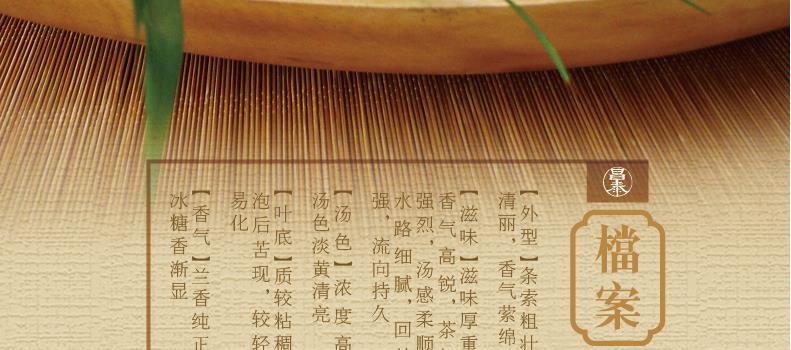 昌泰
檔案
【外型】条索粗壮
清丽，香气萦绵
【滋味】滋味厚重
香气高锐，茶
强烈，汤感柔顺
水路细腻，回
强，流向持久
【汤色】浓度高
汤色淡黄清亮
【叶底】质较粘稠
泡后苦现，较轻
易化
【香气】兰香纯正
冰糖香渐显